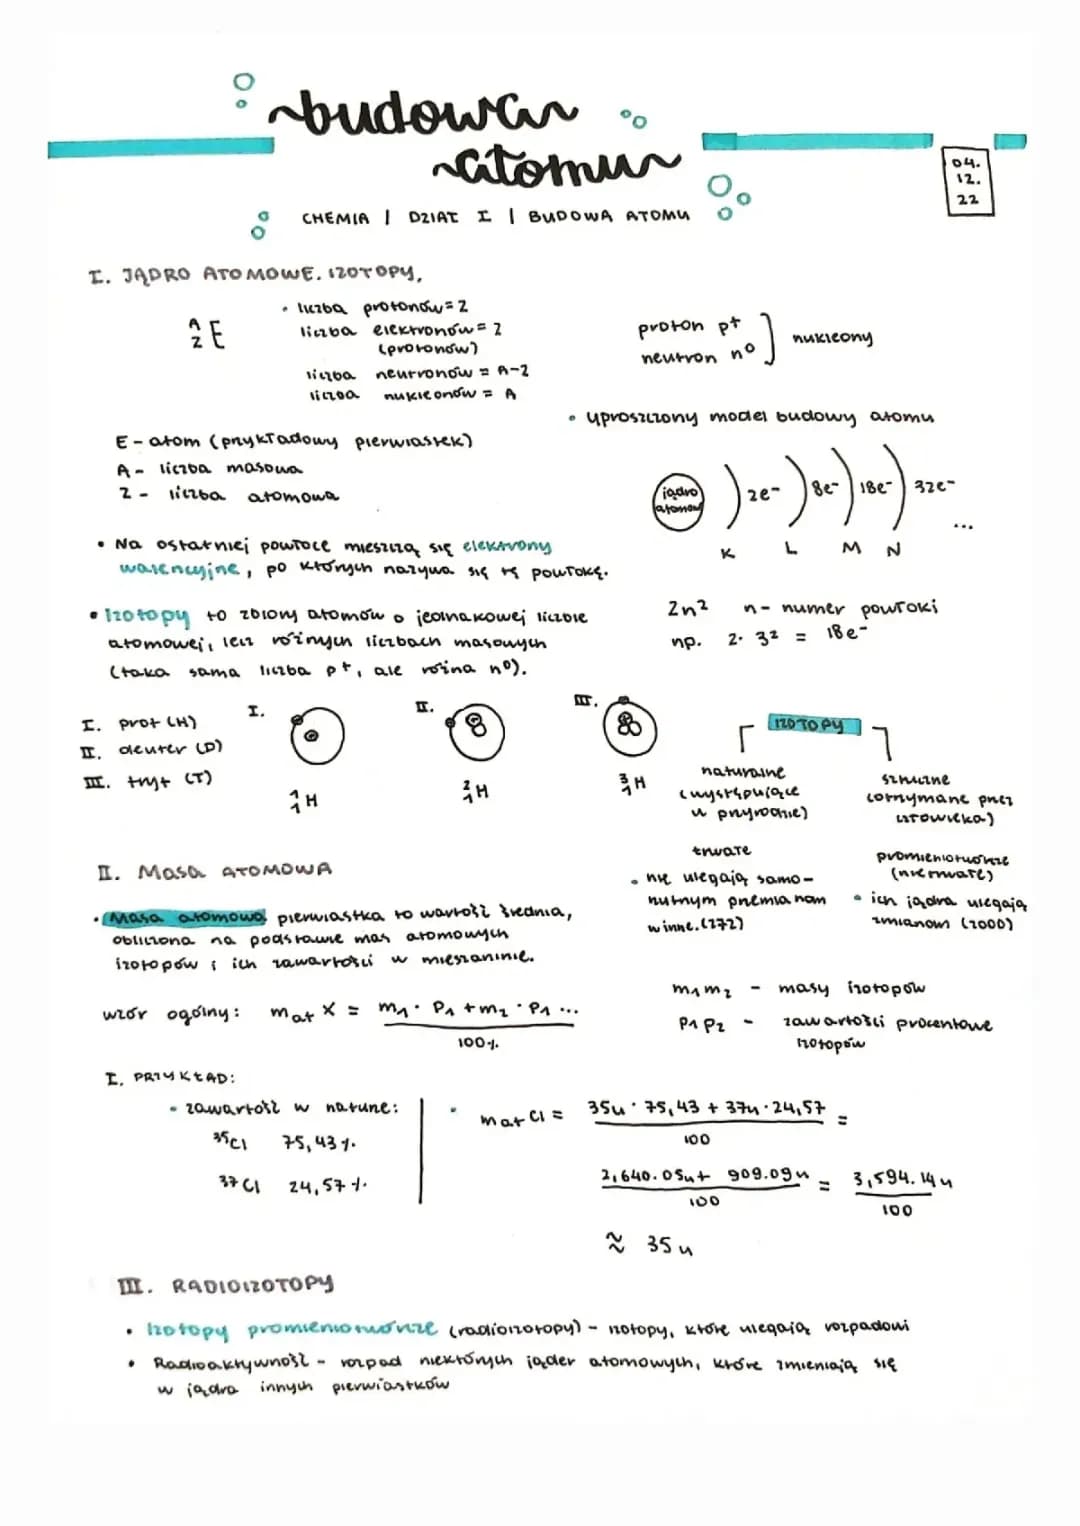 budowa
atomu
04.
12.
22
CHEMIA | DZIAŁ I | BUDOWA ATOMU
I. JĄDRO ATOMOWE. IZOTOPY.
A
Z E
• liczba protonów = Z
liczba elektronów = Z
(protonów)
liczba neutronów = A-Z
liczba nukleonów = A
proton p+
neutron n⁰
nukleony
E - atom (przykładowy pierwiastek)
A - liczba masowa
Z - liczba atomowa
• uproszczony model budowy atomu
jądro
atomowe
2e⁻ 8e⁻ 18e⁻ 32e⁻
...
K L M N
• Na ostatniej powłoce mieszczą się elektrony
walencyjne, po których nazywa się tę powłokę.
2n² n - numer powłoki
np. 2·3² = 18e⁻
• Izotopy to zbiory atomów o jednakowej liczbie
atomowej, lecz różnych liczbach masowych
(taka sama liczba p+, ale różna n⁰).
I. prot (H)
II. deuter (D)
III. tryt (T)
I. II. III.
¹₁H ²₁H ³₁H
IZOTOPY
naturalne
(występujące
w przyrodzie)
trwałe
• nie ulegają samo-
rzutnym przemianom
w inne. (272)
sztuczne
(otrzymane przez
człowieka)
promieniotwórcze
(nietrwałe)
• ich jądra ulegają
zmianom (2000)
II. Masa ATOMOWA
• Masa atomowa pierwiastka to wartość średnia,
obliczona na podstawie mas atomowych
izotopów i ich zawartości w mieszaninie.
wzór ogólny: mat X = m₁ · P₁ + m₂ · P₁ ...
100%
m₁ m₂ - masy izotopów
P₁ P₂ - zawartości procentowe
izotopów
I. PRZYKŁAD:
• zawartość w naturze:
³⁵Cl 75,43%
³⁷Cl 24,57%
• mat Cl = 35u · 75,43 + 37u · 24,57 =
100
2,640.05u + 909.09u = 3,594.14u
100 100
≈ 35u
III. RADIOIZOTOPY
• Izotopy promieniotwórcze (radioizotopy) - izotopy, które ulegają rozpadowi
• Radioaktywność - rozpad niektórych jąder atomowych, które zmieniają się
w jądra innych pierwiastków